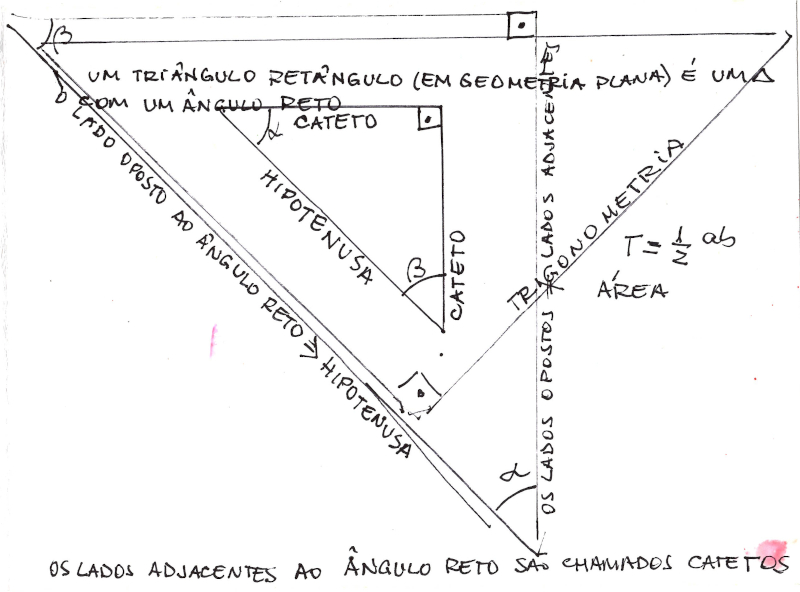 β
UM TRIÂNGULO RETÂNGULO (EM GEOMETRIA PLANA) É UM △
COM UM ÂNGULO RETO
α CATETO
HIPOTENUSA
β
CATETO
O LADO OPOSTO AO ÂNGULO RETO => HIPOTENUSA
TRIGONOMETRIA
OS LADOS OPOSTOS LADOS ADJACENTES
T = 1/2 ab
ÁREA
α
OS LADOS ADJACENTES AO ÂNGULO RETO SÃO CHAMADOS CATETOS